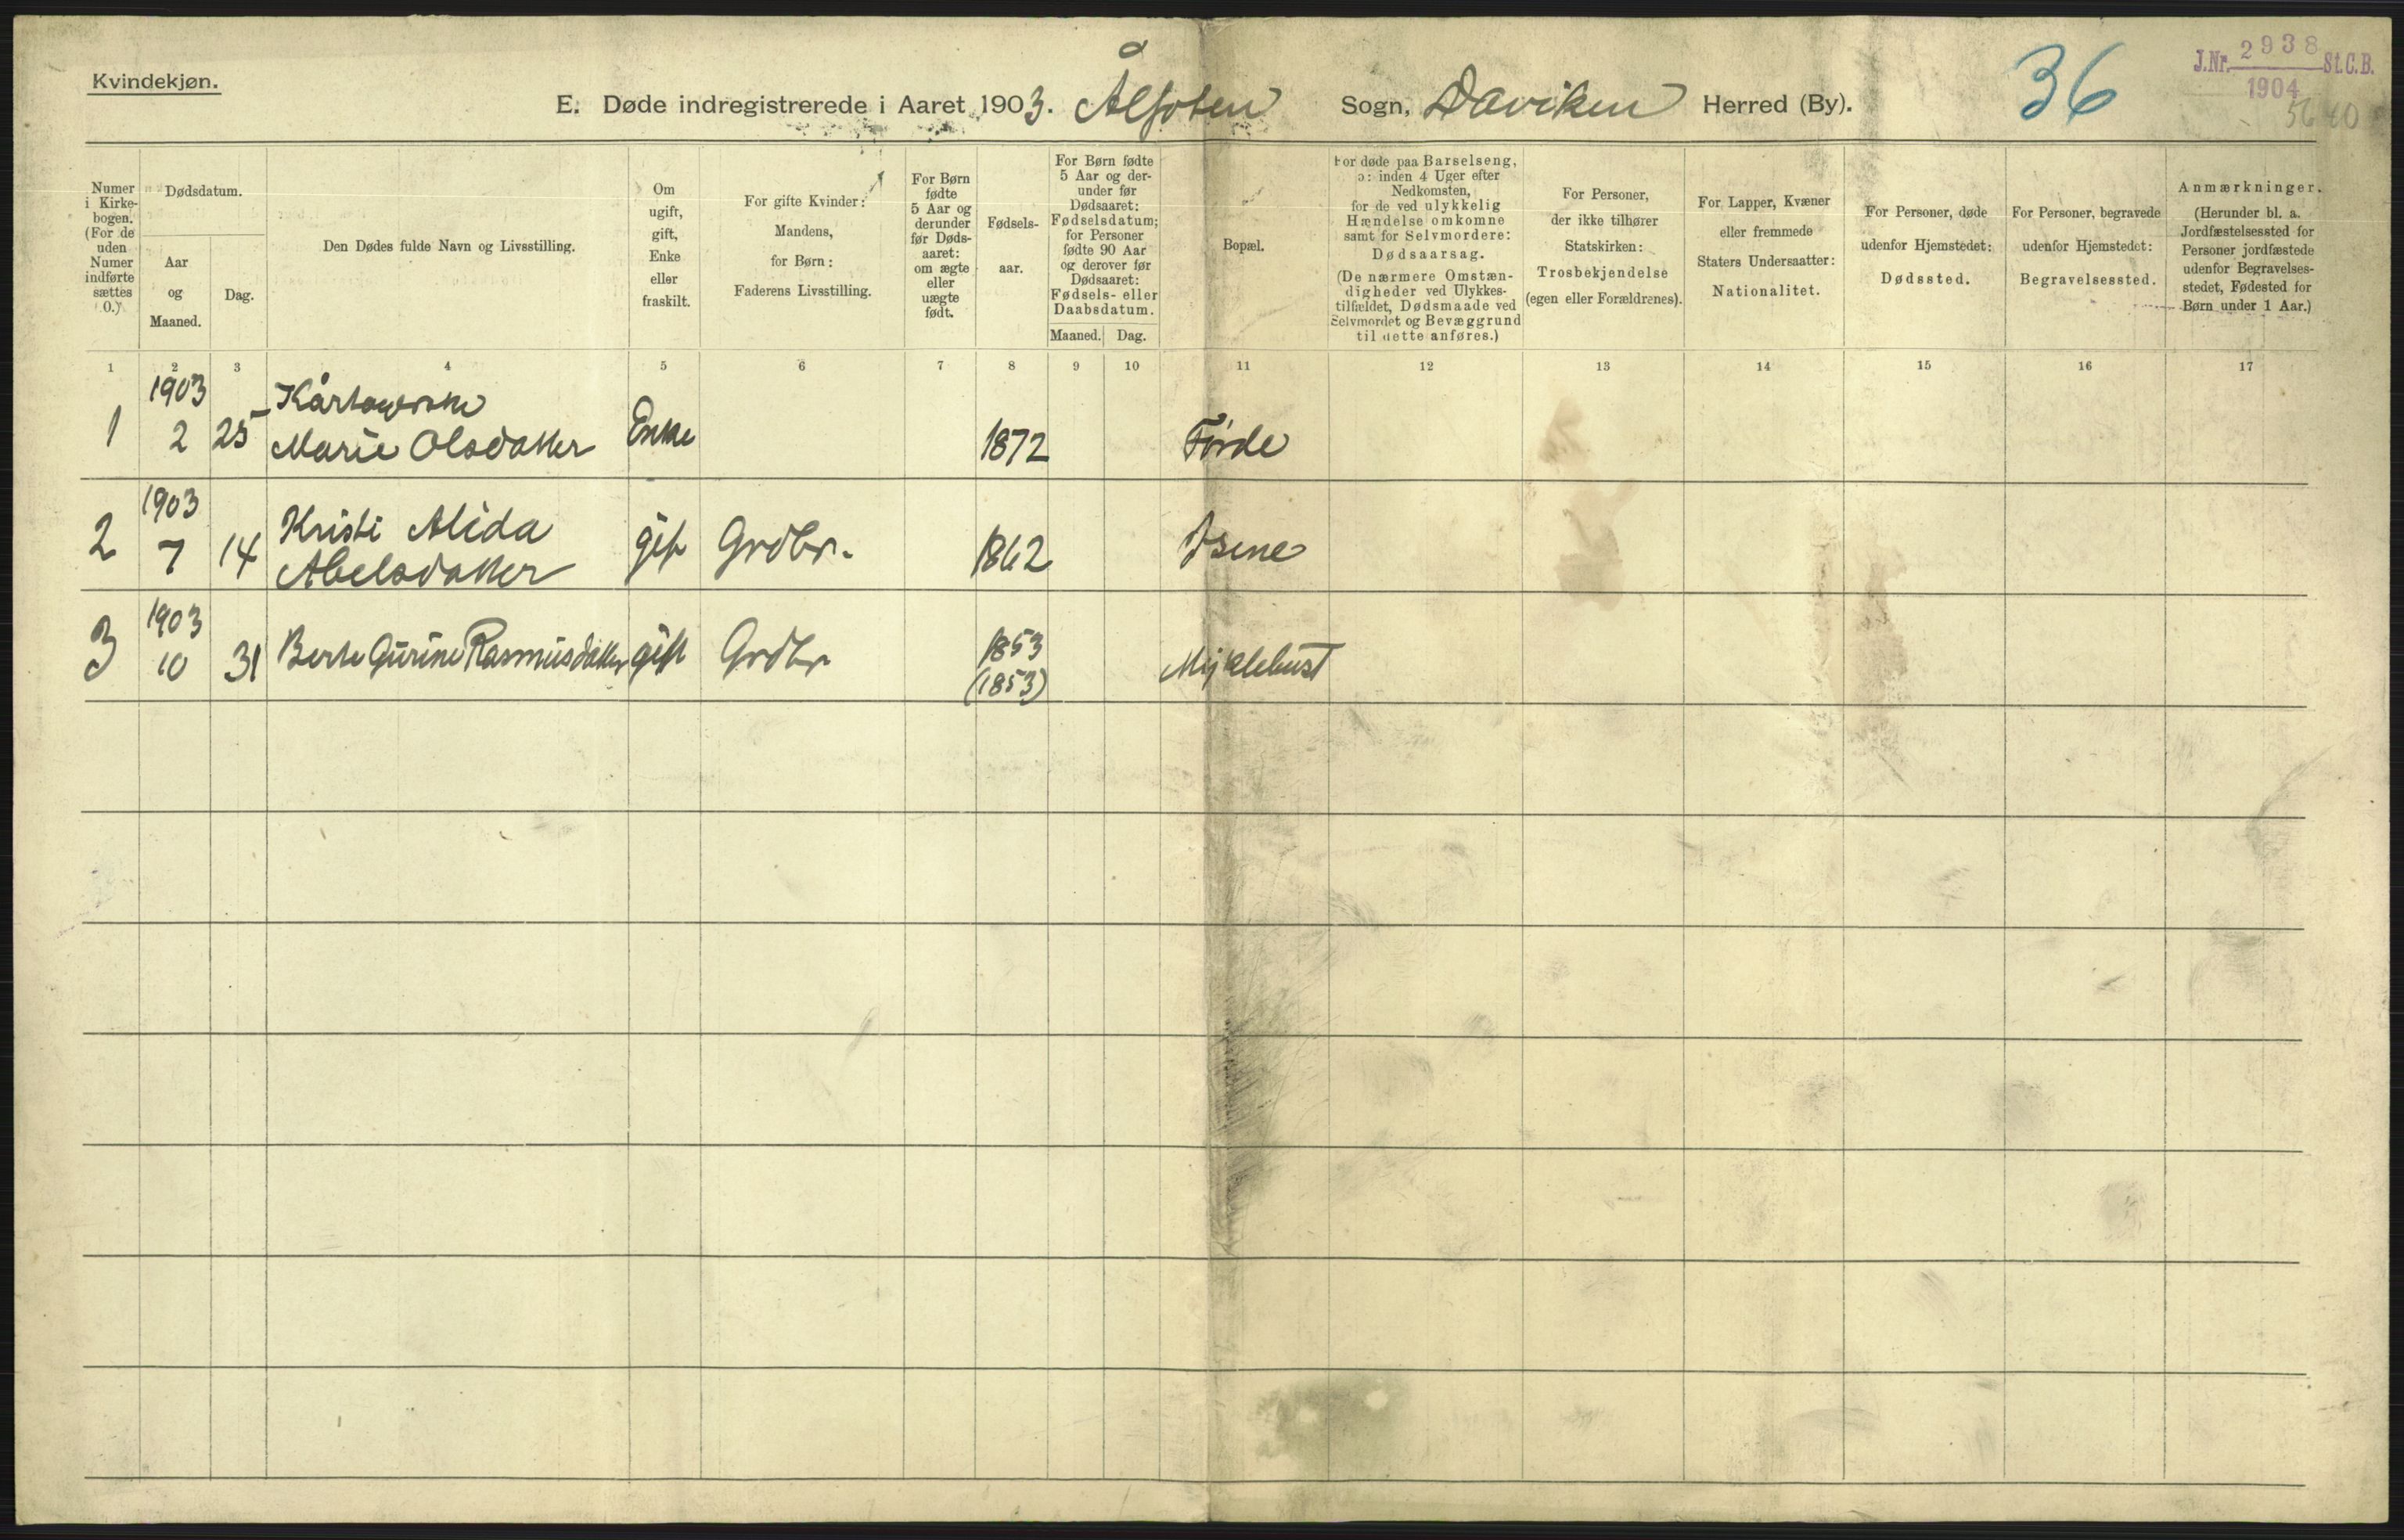 Kvindekjøn.
E. Døde indregistrerede i Aaret 1903. Ålfoten Sogn, Daviken Herred (By).
36
J.Nr. 2938 St.C.B.
1904
Numer i Kirke-bogen. (For de uden Numer indførte sættes 0.)
Dødsdatum.
Aar og Maaned.
Dag.
Den Dødes fulde Navn og Livsstilling.
Om ugift, gift, Enke eller fraskilt.
For gifte Kvinder: Mandens, for Børn: Faderens Livsstilling.
For Børn fødte 5 Aar og derunder før Døds-aaret: om ægte eller uægte født.
Fødsels-aar.
For Børn fødte 5 Aar og der-under før Dødsaaret: Fødselsdatum; for Personer fødte 90 Aar og derover før Dødsaaret: Fødsels- eller Daabsdatum.
Maaned. Dag.
Bopæl.
For døde paa Barselseng, ɔ: inden 4 Uger efter Nedkomsten, for de ved ulykkelig Hændelse omkomne samt for Selvmordere: Dødsaarsag.
(De nærmere Omstæn-digheder ved Ulykkes-tilfældet, Dødsmaade ved Selvmordet og Bevæggrund til dette anføres.)
For Personer, der ikke tilhører Statskirken: Trosbekjendelse (egen eller Forældrenes).
For Lapper, Kvæner eller fremmede Staters Undersaatter: Nationalitet.
For Personer, døde udenfor Hjemstedet: Dødssted.
For Personer, begravede udenfor Hjemstedet: Begravelsessted.
Anmærkninger.
(Herunder bl. a. Jordfæstelsessted for Personer jordfæstede udenfor Begravelses-stedet, Fødested for Børn under 1 Aar.)
1 2 3 4 5 6 7 8 9 10 11 12 13 14 15 16 17
1903
1 2 25 Marie Olsdatter Enke 1872 Førde
1903
2 7 14 Kristi Alida Abelsdatter gift Grdbr. 1862 Isene
1903
3 10 31 Berte Gurine Rasmusdatter gift Grdbr 1853 Myklebust
(1853)